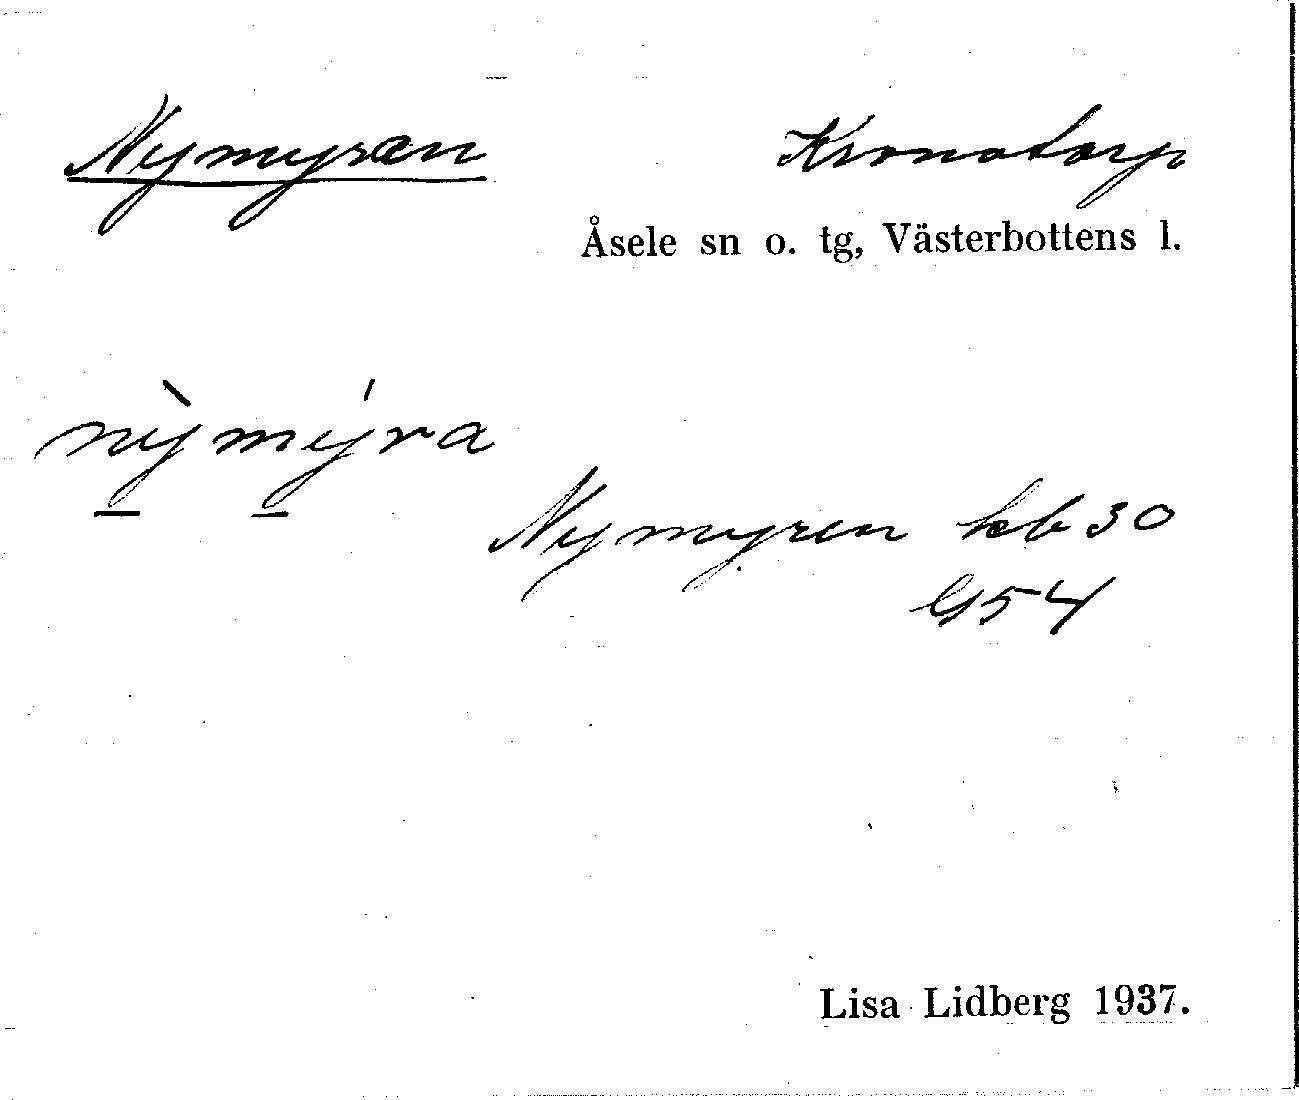 Nymyran Kronotorp
Åsele sn o. tg, Västerbottens l.
nỳmýra
Nymyren kb 30
G54
Lisa Lidberg 1937.